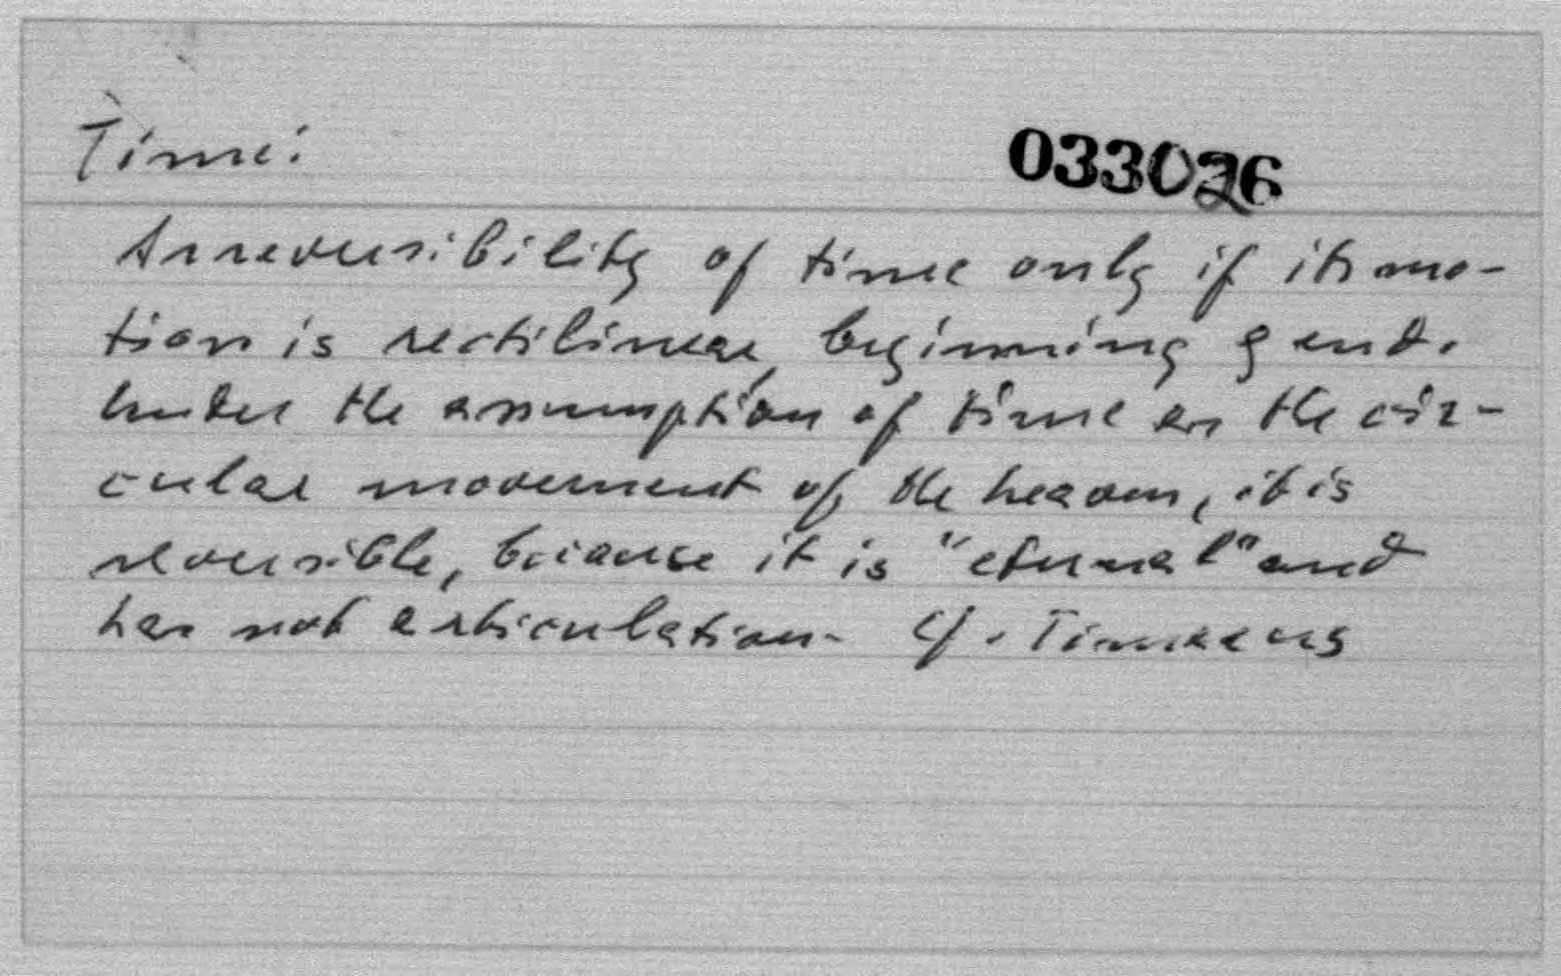 Time:
033026
Irreversibility of time only if its mo-
tion is rectilinear, beginning & end.
Under the assumption of time as the cir-
cular movement of the heaven, it is
reversible, because it is "eternal" and
has not articulation. Cf. Timaeus